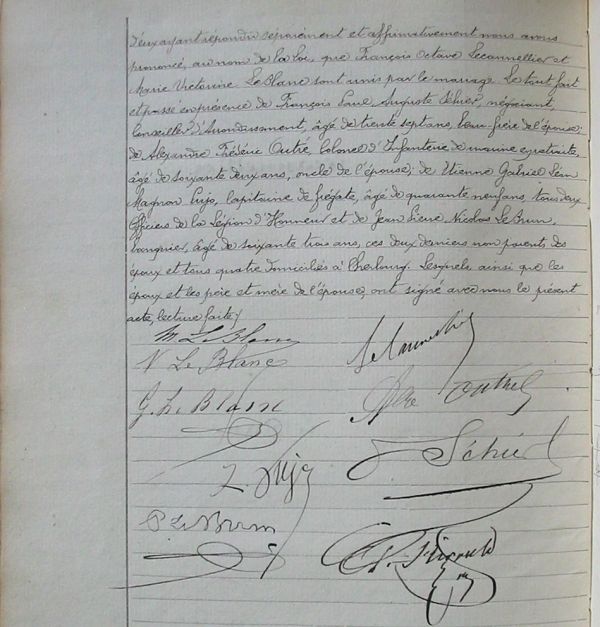 d'eux ayant répondu séparément et affirmativement nous avons
prononcé, au nom de la loi, que François Octave Lecannellier et
Marie Victorine Le Blanc sont unis par le mariage. Le tout fait
et passé en présence de François Paul Auguste Schier, négociant,
Conseiller d'Arrondissement, âgé de trente sept ans, beau-frère de l'épouse;
de Alexandre Frédéric Outré, Colonel d'Infanterie de marine en retraite,
âgé de soixante deux ans, oncle de l'épouse; de Etienne Gabriel Léon
Magnon Pujo, Capitaine de frégate, âgé de quarante neuf ans, tous deux
Officiers de la Légion d'Honneur et de Jean Pierre Nicolas Le Brun,
banquier, âgé de soixante trois ans, ces deux derniers non parents des
époux et tous quatre domiciliés à Cherbourg. Lesquels, ainsi que les
époux et les père et mère de l'épouse, ont signé avec nous le présent
acte, lecture faite./
M Le Blanc
V Le Blanc
G. Le Blanc
L. Pujo
Schier
P. Le Brun